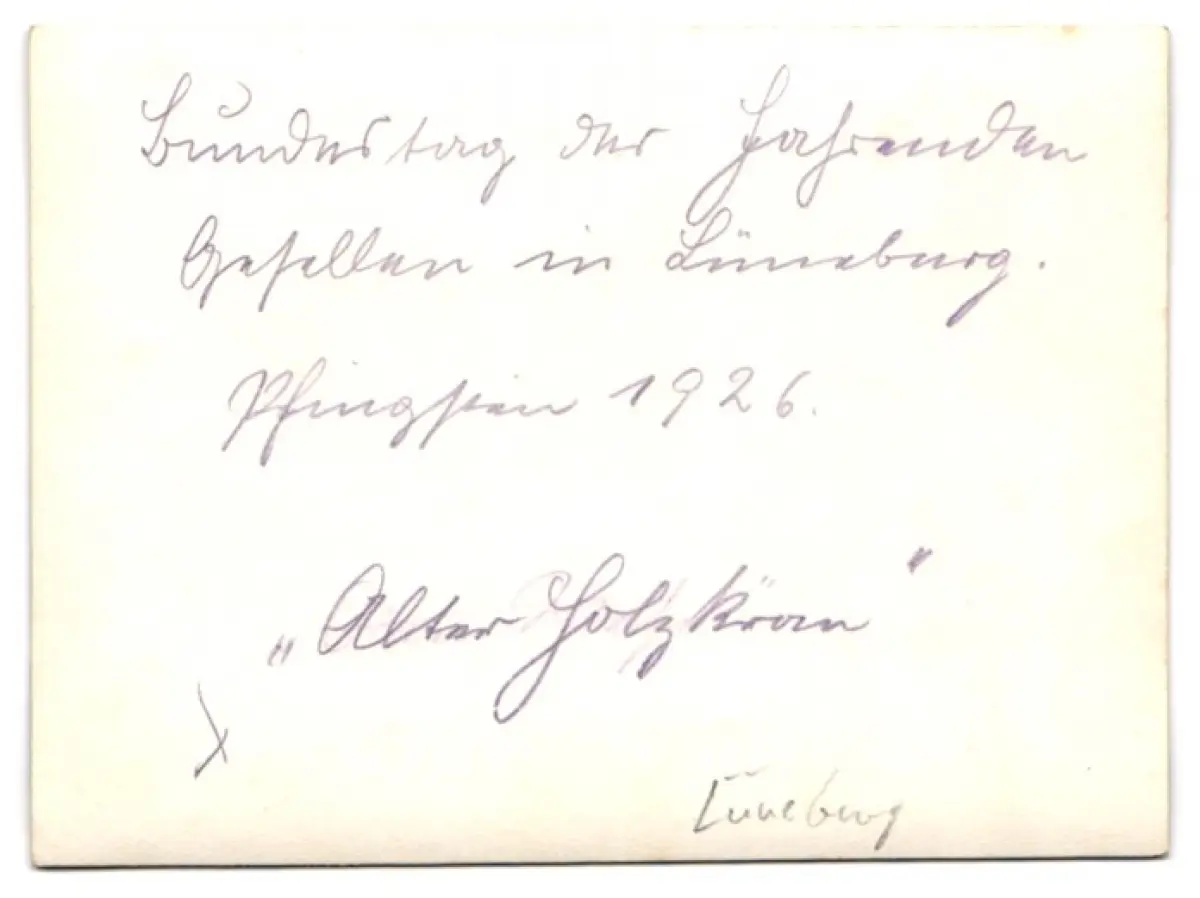 Bundestag der Fahrenden
Gesellen in Lüneburg.
Pfingsten 1926.
„Alter Holzkran"
Lüneburg